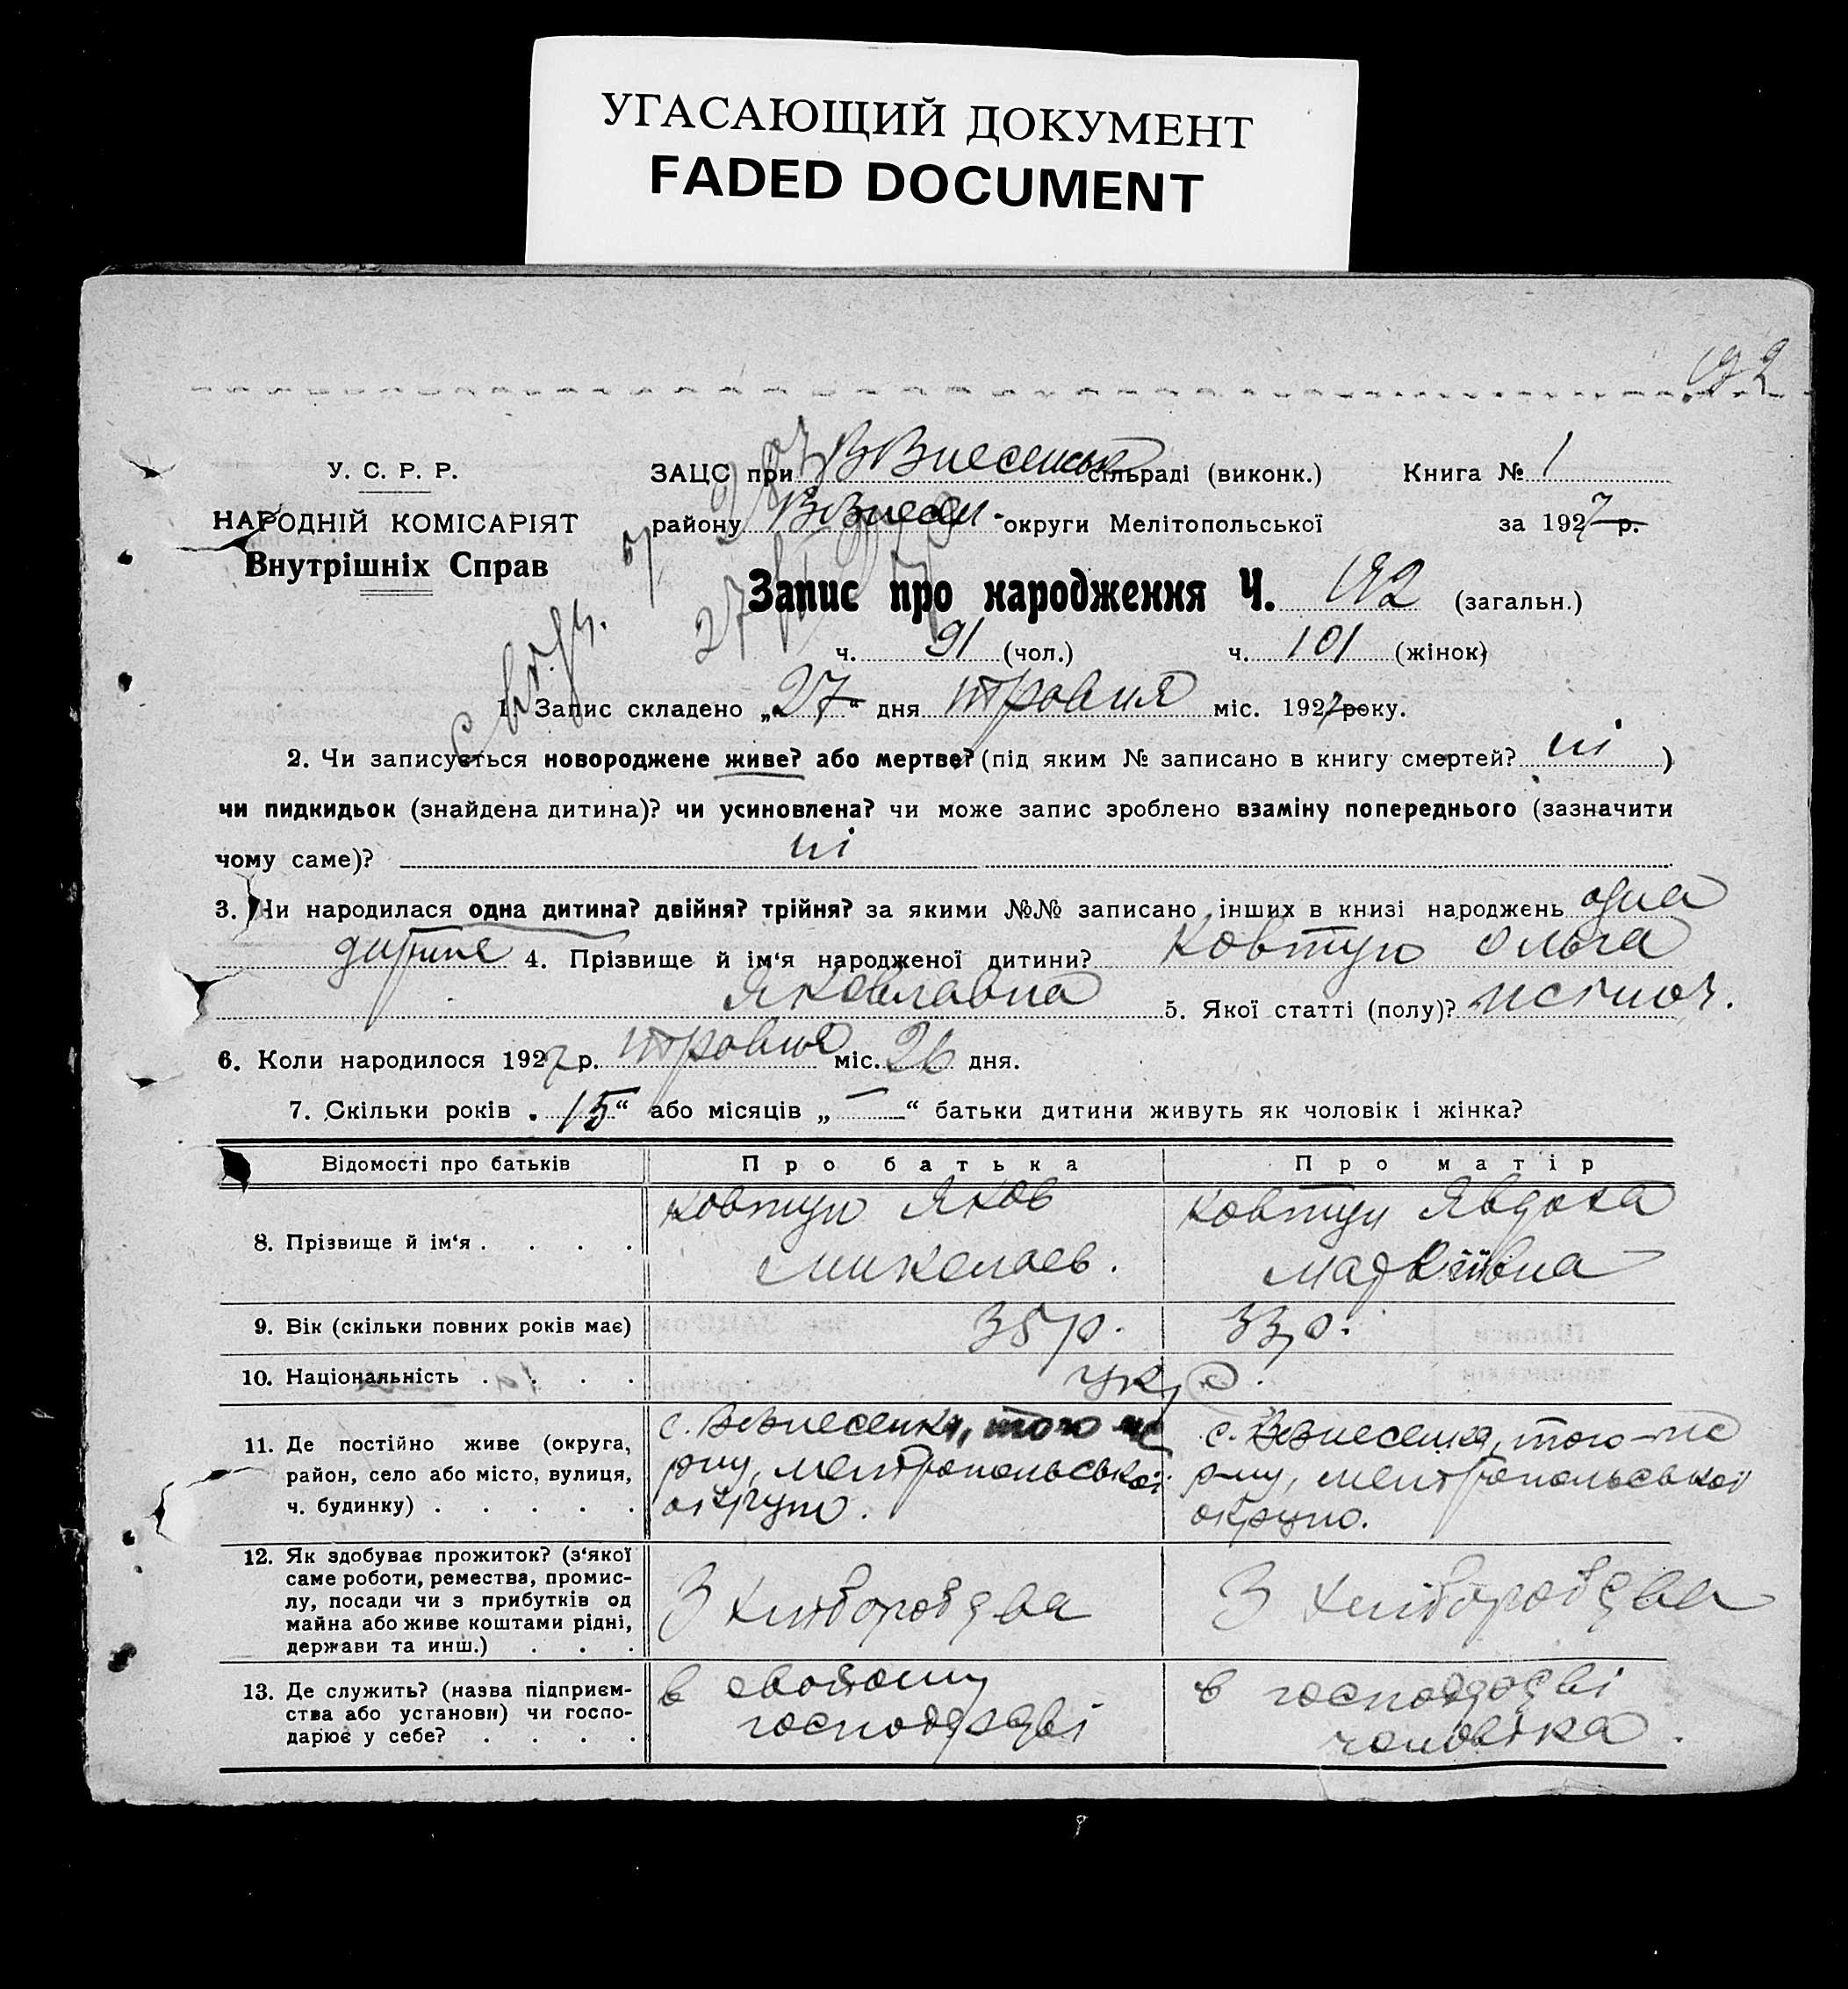 УГАСАЮЩИЙ ДОКУМЕНТ
FADED DOCUMENT
192
У. С. Р. Р.
НАРОДНІЙ КОМІСАРІЯТ
Внутрішніх Справ
ЗАЦС при сільраді (виконк.) Книга № 1
району округи Мелітопольської за 1927 р.
Запис про народження Ч. 192 (загальн.)
ч. 91 (чол.) ч. 101 (жінок)
1. Запис складено „27“ дня травня міс. 1927 року.
2. Чи записується новороджене живе? або мертве? (під яким № записано в книгу смертей? ні )
чи пидкидьок (знайдена дитина)? чи усиновлена? чи може запис зроблено взаміну попереднього (зазначити
чому саме)? ні
3. Чи народилася одна дитина? двійня? трійня? за якими №№ записано інших в книзі народжень одна
дитина 4. Прізвище й ім‘я народженої дитини? Ковтун Ольга
Яковлавна 5. Якої статті (полу)? жіноч.
6. Коли народилося 1927 р. травня міс. 26 дня.
7. Скільки років „15“ або місяців „—“ батьки дитини живуть як чоловік і жінка?
Відомості про батьків Про батька Про матір
8. Прізвище й ім‘я . . . . Ковтун Яков Миколаев. Ковтун Явдоха
9. Вік (скільки повних років має) 35 р. 33 р.
10. Національність . . . . укр.
11. Де постійно живе (округа, район, село або місто, вулиця, ч. будинку) . . . . .
с. Вознесенка, того ж р-ну, Мелітопольської округи.
с. Вознесенка, того-ж р-ну, Мелітопольської округи.
12. Як здобуває прожиток? (з‘якої саме роботи, ремества, промислу, посади чи з прибутків од майна або живе коштами рідні, держави та инш.) . . .
З хліборобства
З хліборобства
13. Де служить? (назва підприємства або установи) чи господарює у себе? . . . .
в своїому господарстві
в господарстві чоловіка.